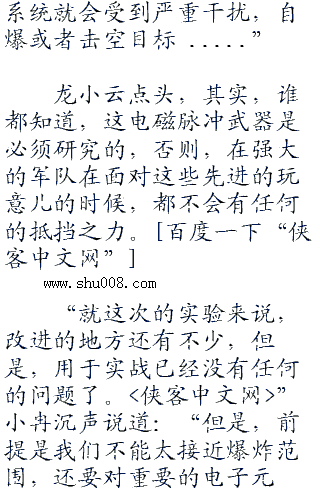 系统就会受到严重干扰，自
爆或者击空目标 .....”
龙小云点头，其实，谁
都知道，这电磁脉冲武器是
必须研究的，否则，在强大
的军队在面对这些先进的玩
意儿的时候，都不会有任何
的抵挡之力。[百度一下“侠
客中文网”]
www.shu008.com
“就这次的实验来说，
改进的地方还有不少，但
是，用于实战已经没有任何
的问题了。<侠客中文网>”
小冉沉声说道：“但是，前
提是我们不能太接近爆炸范
围，还要对重要的电子元